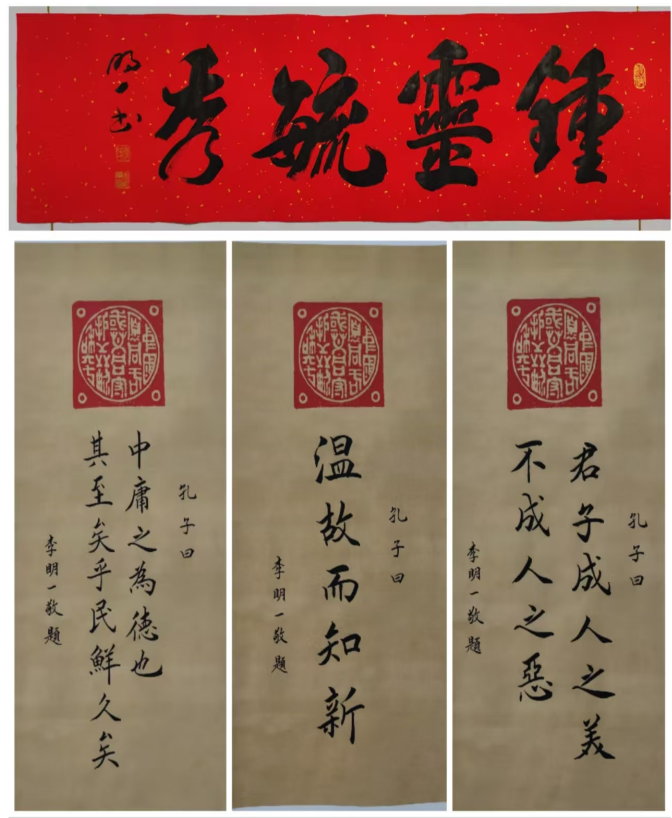 鍾靈毓秀
明一书
孔子曰
君子成人之美
不成人之惡
李明一敬題
孔子曰
温故而知新
李明一敬題
孔子曰
中庸之為德也
其至矣乎民鮮久矣
李明一敬題